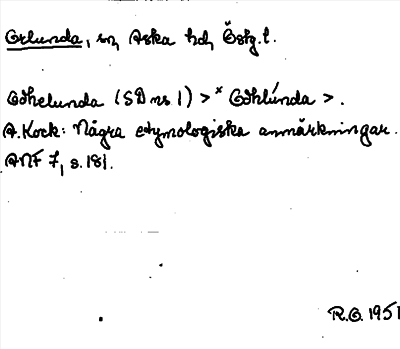 Orlunda, sn, Aska hd, Östg.l.
Odhelunda (SD ns 1) > * Odhlúnda >.
A. Kock: Några etymologiska anmärkningar.
ANF 7, s. 181.
R.O. 1951